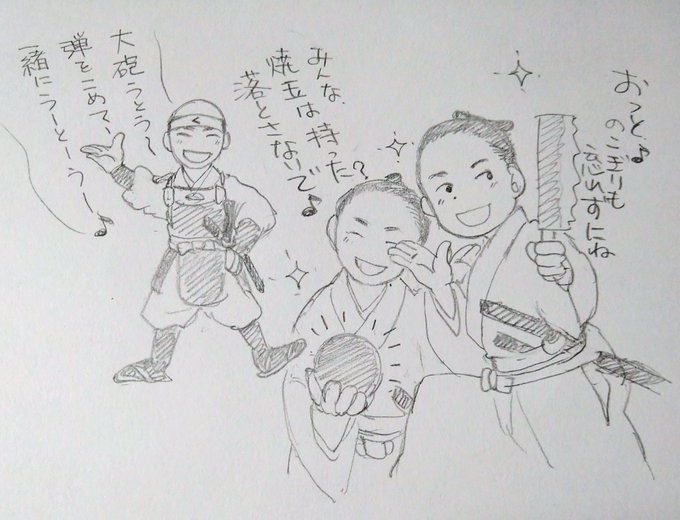 おっと♪
のこぎりも
忘れずにね
みんな、
焼玉は持った?
落とさないで♪
大砲うとう〜
弾をこめて、
一緒にうーとーうー♪